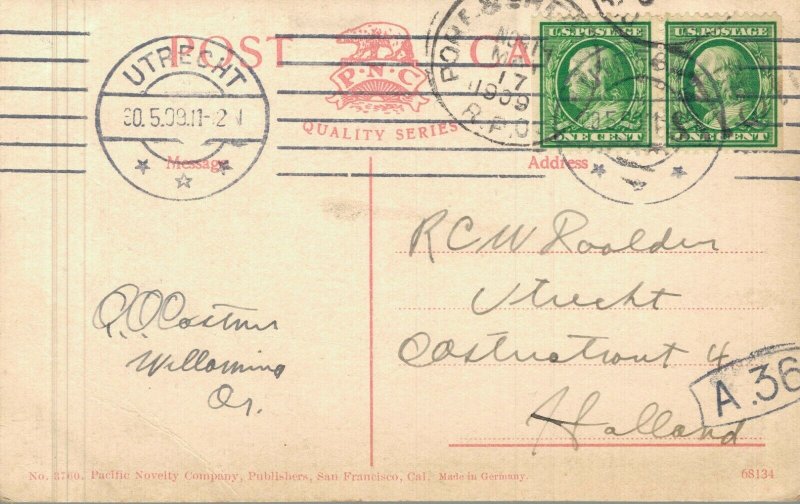 POST CA
P.N.C
QUALITY SERIES
UTRECHT
30.5.09.11-12 N
MAY
17
1909
R.P.O.
U.S. POSTAGE
ONE CENT
U.S. POSTAGE
ONE CENT
Message
Address
R C W Roolder
Utrecht
4
Holland
A.36
Willamina
Or.
No. 3760. Pacific Novelty Company, Publishers, San Francisco, Cal. Made in Germany.
68134